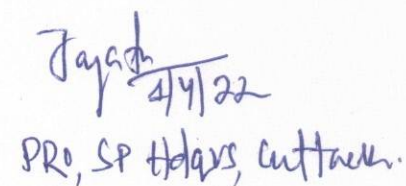 Jayash
4/4/22
PRO, SP Hdqrs, Cuttack.